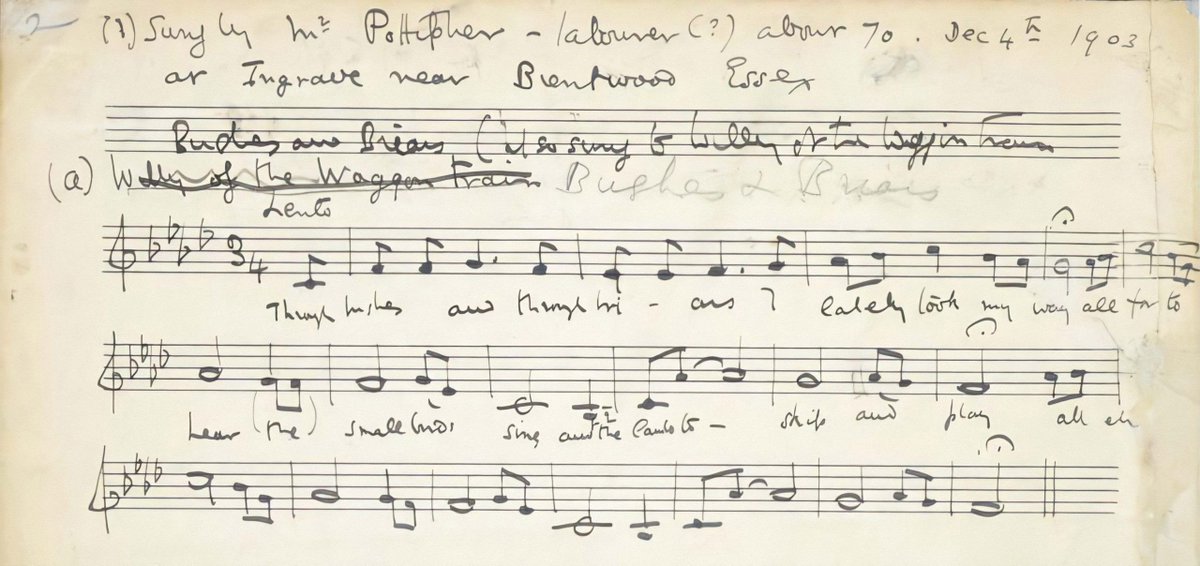 2 (1) Sung by Mr Pottipher - labourer (?) about 70. Dec 4th 1903
at Ingrave near Brentwood Essex
Bushes and Briars (also sung to Willy of the Waggon Train
(a) Willy of the Waggon Train Bushes & Briars
Lento
3
4
Through bushes and through bri - ars I lately took my way all for to
hear (the) small birds sing and the lambs to - skip and play all